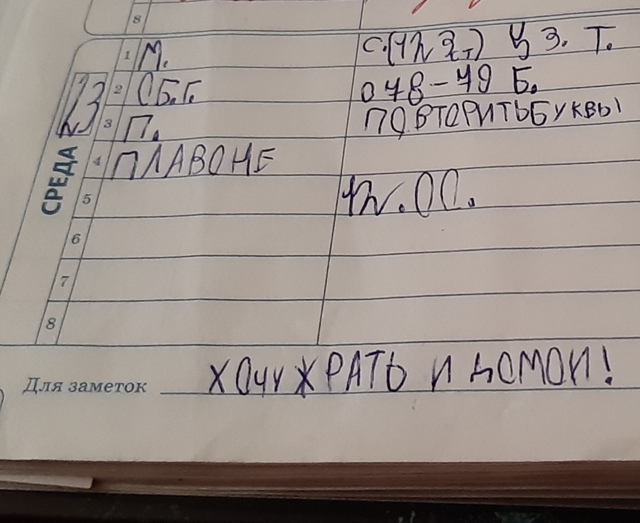 8
1 М. С.(12 3т) У З. Т.
2 ОБ.Г. 048-49 Б.
3 П. ПОВТОРИТЬ БУКВЫ
4 ПЛАВОНЕ
5 12.00.
6
7
8
СРЕДА 23
Для заметок ХОЧУ ЖРАТЬ И ДОМОЙ!